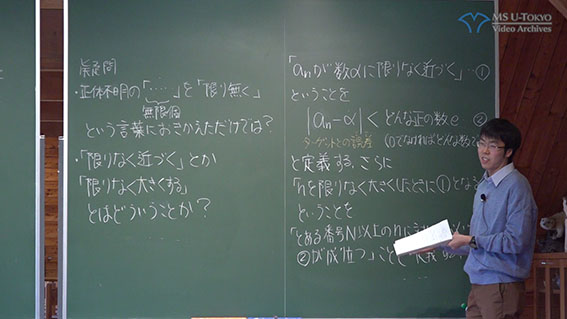 疑問
・正体不明の「……」を「限り無く」
無限個
という言葉におきかえただけでは?
・「限りなく近づく」とか
「限りなく大きくする」
とはどういうことか?
「anが数αに限りなく近づく」…①
ということを
|an-α| < どんな正の数e ②
ターゲットとの誤差 (0でなければどんな数で
と定義する。さらに
「nを限りなく大きくしたときに①となる
ということを
「とある番号N以上のnに
②が成り立つ」こと
MS U-TOKYO
Video Archives